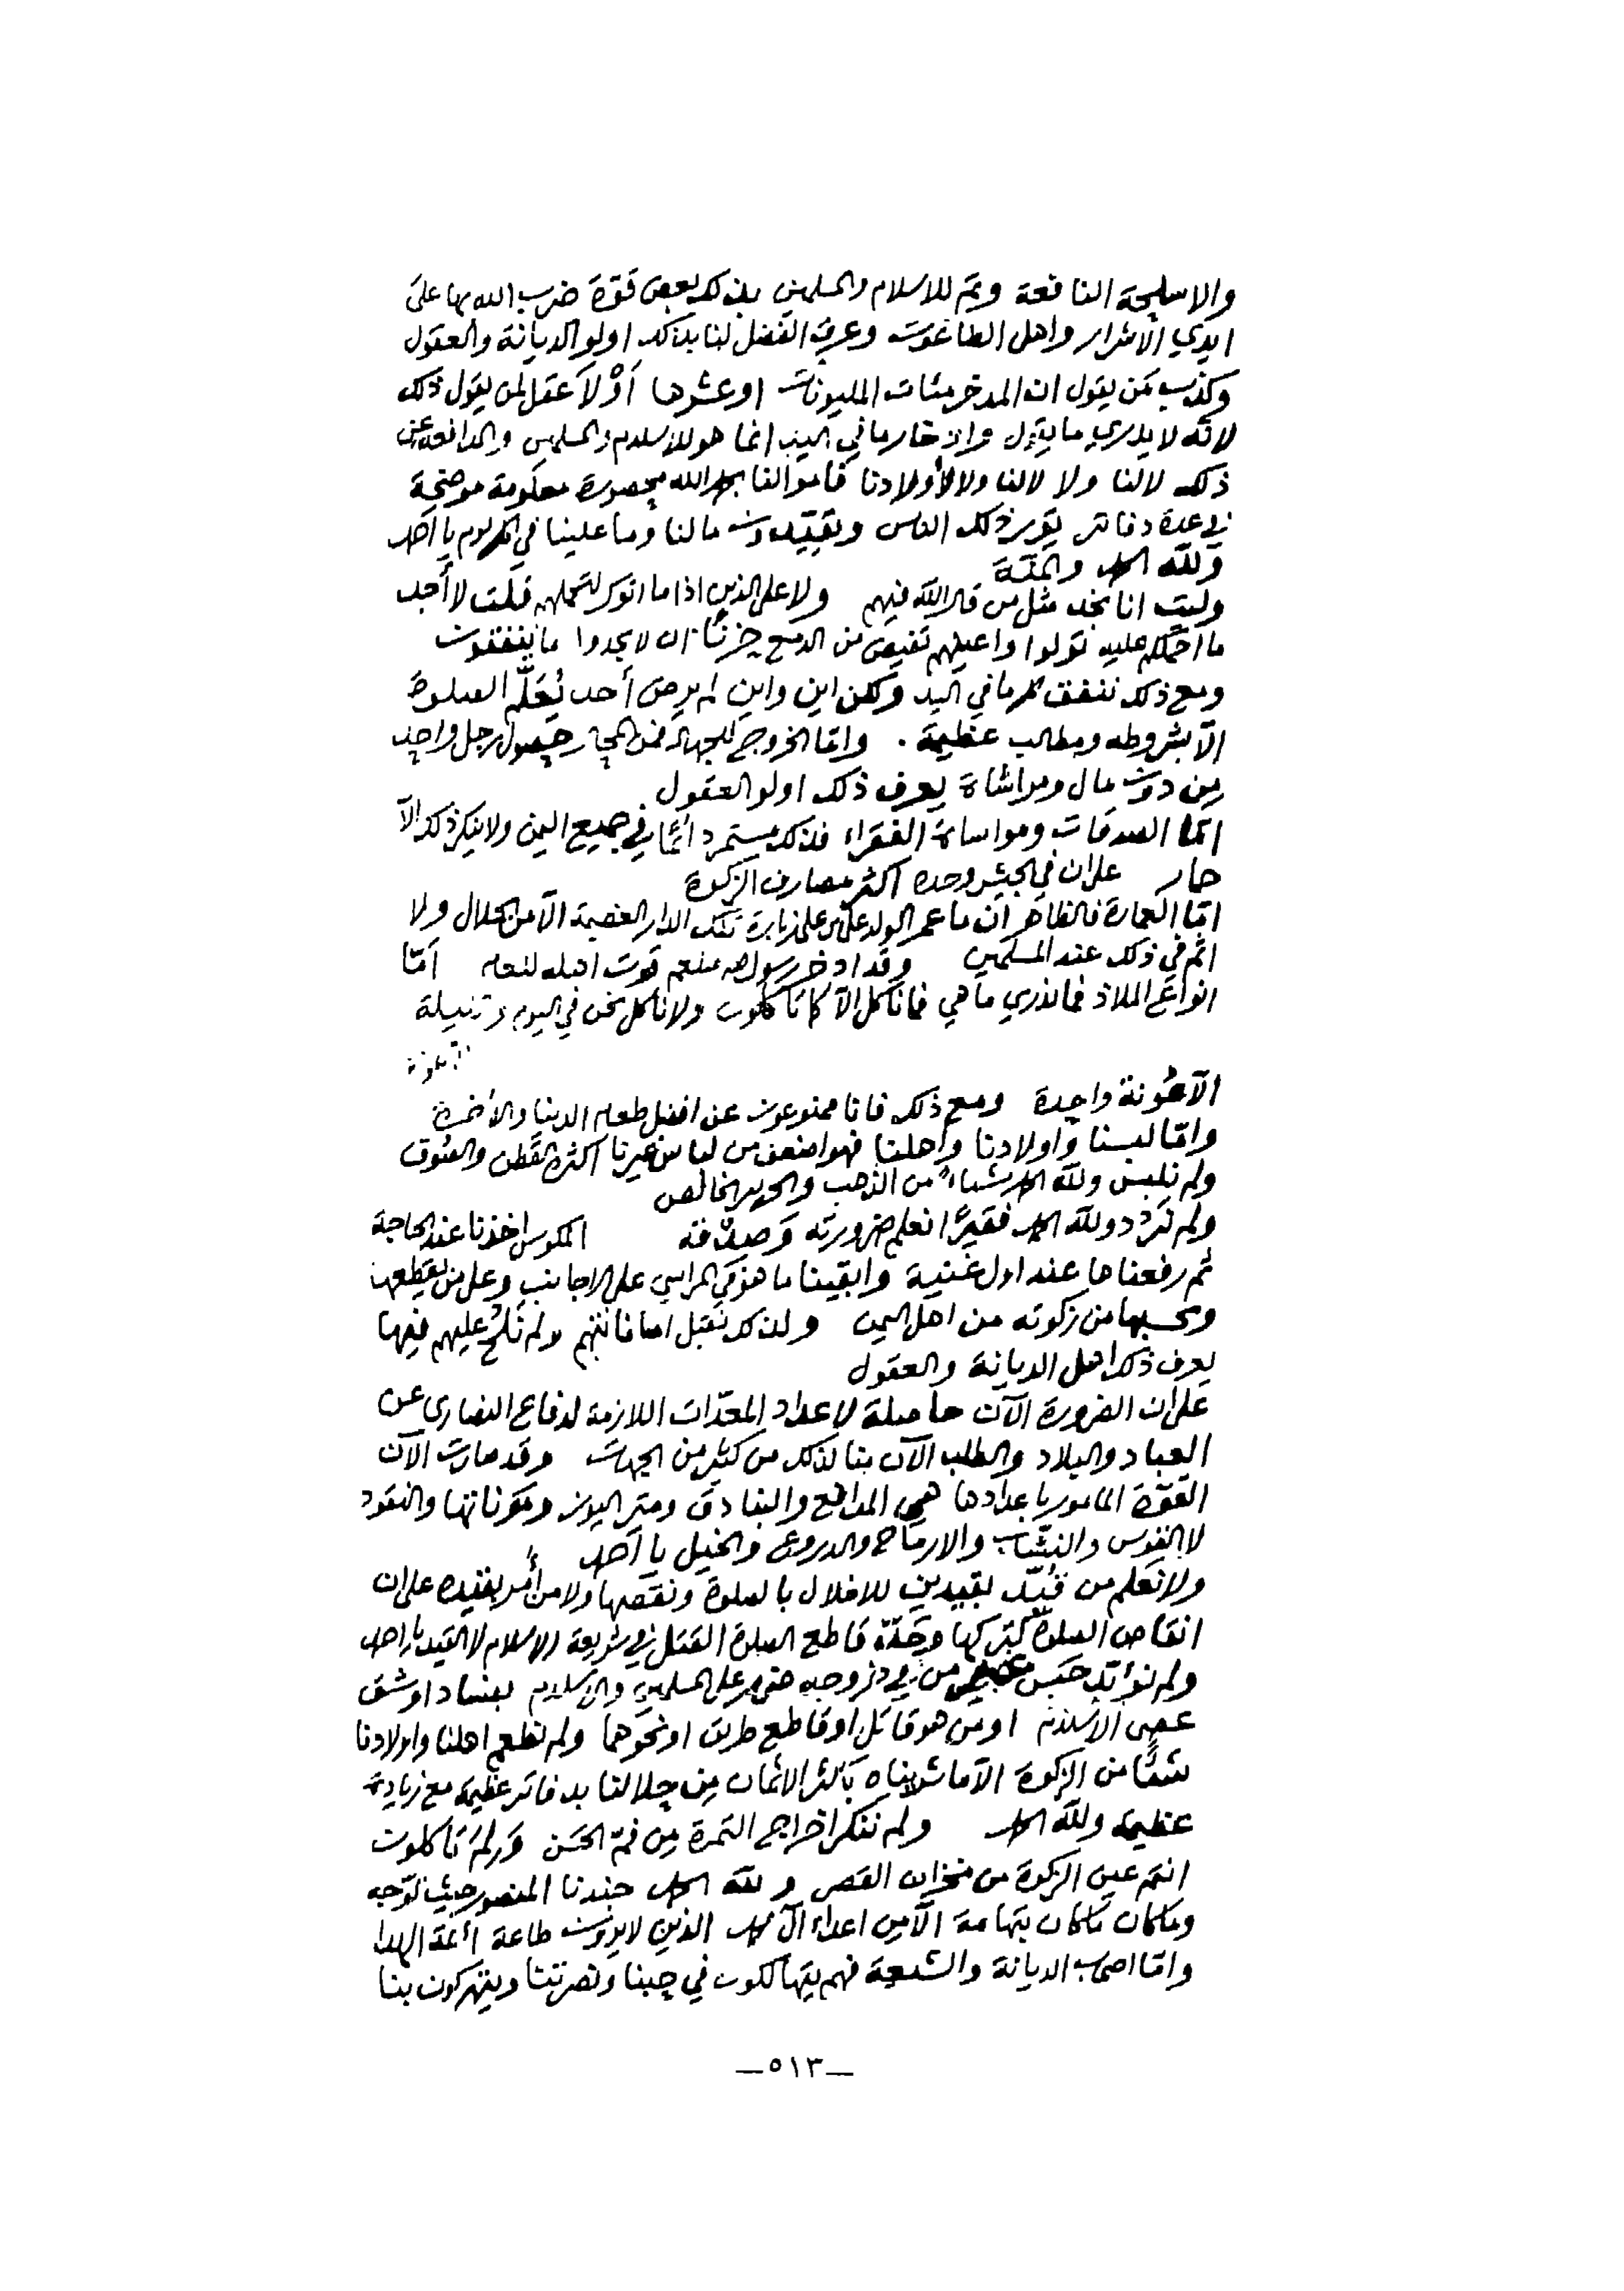 والاسلحة النافعة وتم للاسلام والمسلمين بذلك بعض قوّة ضرب الله بها على
ايدي الاشرار واهل الطاغوت وعرف الفضل لنا بذلك اولو الديانة والعقول
وكذب من يقول ان المدخر مئات المليونات او عشرها اذ لا عقل لمن يقول ذلك
لانه لا يدري ما يقول وادخار ما في اليد انما هو للاسلام والمسلمين والمدافعة عن
ذلك لا لنا ولا لالنا ولا لأولادنا فاموالنا بحمد الله محصورة معلومة موضحة
في عدة دفاتر يقرر ذلك الناس وتقييدون ما لنا وما علينا في كل يوم يا احمد
ولله الحمد والمنّة
وليت انا نجد مثل من قال الله فيهم ولا على الذين اذا ما اتوك لتحملهم قلت لا أجد
ما احملكم عليه تولوا واعينهم تفيض من الدمع حزنًا ان لا يجدوا ما ينفقون
ومع ذلك ننفق كل ما في اليد ولكن اين واين لم يرض أحد يُعلّم الصلوة
الّا بشروطه ومطالب عظيمة . وامّا الخروج للجهاد فمن المحال حصول رجل واحد
من دون مال ومراشاة يعرف ذلك اولو العقول
امّا الصدقات ومواساة الفقراء فذلك مستمر دائمًا في جميع اليمن ولا ينكر ذلك الّا
حمار على ان في الجيش وحده اكثر مصارف الزكوة
امّا العمارة فالظاهر ان ما عمر الولد علي من على زبارة تلك الدار الفضيمة الّا من الحلال ولا
اثم في ذلك عند المسلمين وقد ادخر رسول الله صلعم قوت اهله لعام امّا
انواع الملاذ فما ندري ما هي فما نأكل الّا كما تأكلون ولا نأكل نحن في اليوم وتنيلة
الّا مونة
الّا مونة واحدة ومع ذلك فانا ممنوعون عن افضل طعام الدنيا والأخرة
وامّا لبسنا واولادنا واهلنا فهو اضعف من لباس غيرنا اكثره القطن والصوف
ولم نلبس ولله الحمد شيئًا من الذهب والحرير الخالص
ولم نردد ولله الحمد فقيرًا نعلم ضرورته وصدقه المكوس اخذنا عند الحاجة
ثم رفعناها عند اول غنية وابقينا ما هو في المراسي على الاجانب وعلى من يقطعها
ويحسبها من زكوته من اهل اليمن ولذلك نقبل اضافاتهم ولم نلح عليهم فيها
يعرف ذلك اهل الديانة والعقول
على ان الضرورة الآن حاصلة لاعداد المعدّات اللازمة لدفاع النصارى عن
العباد والبلاد والطلب الآن بنا لذلك من كثير من الجهات وقد صارت الآن
القوّة المامور باعدادها هي المدافع والبنادق ومتر اليوز ومكوناتها والنقود
لا القوس والنشّاب والارماح والدروع والخيل يا احمد
ولا نعلم من قُيّد بقيدين للاخلال بالصلوة ونقصها ولا من أُمر بقيده على ان
انقاص الصلوة كتركها وحدّ قاطع الصلوة القتل في شريعة الاسلام لا القيد يا احمد
ولم نؤبّد حبس من في خروجه ضرر على المسلمين والاسلام بفساد او شق
عصى الاسلام او من هو قاتل او قاطع طريق او نحوهما ولم نطعم اهلنا واولادنا
شيئًا من الزكوة الّا ما شريناه بأكثر الاثمان من حلالنا بدفاتر عظيمة مع زيادة
عظيمة ولله الحمد ولم ننكر اخراج التمرة من فم الحسن ولم تأكلون
انتم عين الزكوة من مخزان القصر ولله الحمد جندنا المنصور حيث توجه
وما كان ما كان بتهامة الّا من اعداء آل محمد الذين لا يرون طاعة أئمة الهدا
وامّا اصحاب الديانة والشيعة فهم يتهالكون في حبنا ونصرتنا ويتبركون بنا
—٥١٣—